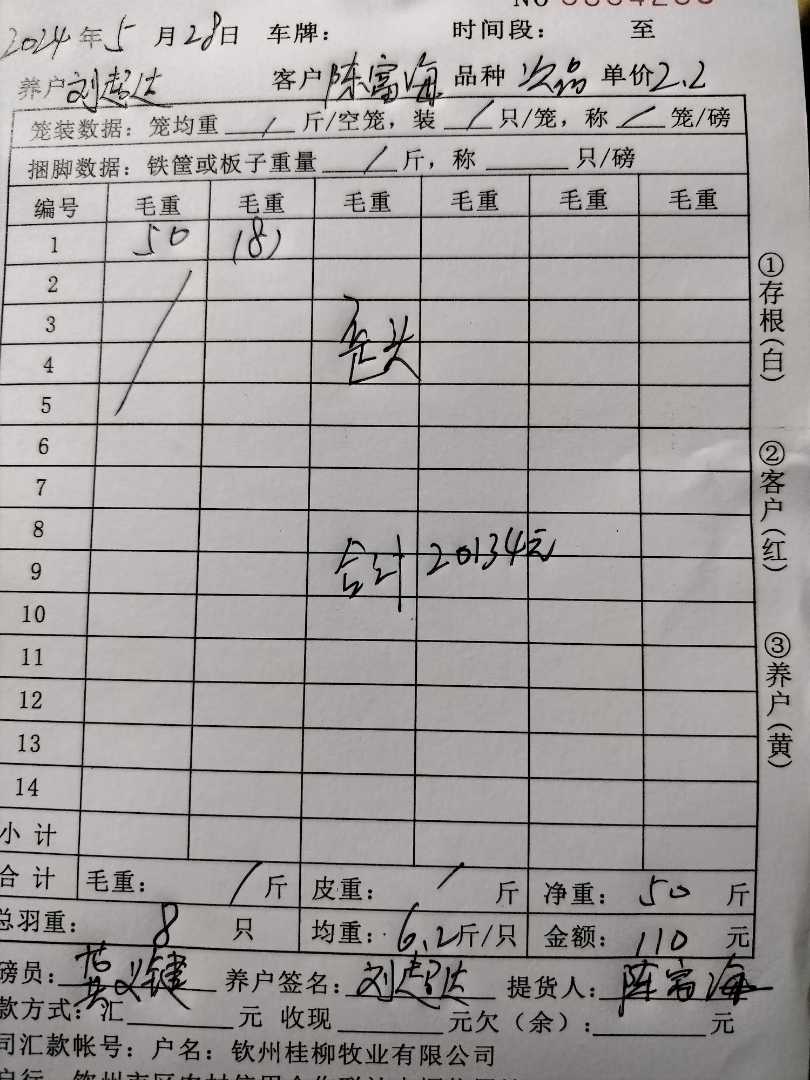 2024年5月28日 车牌： 时间段： 至
养户刘超达 客户陈富海 品种 次品 单价2.2
笼装数据：笼均重 / 斤/空笼，装 / 只/笼，称 / 笼/磅
捆脚数据：铁筐或板子重量 / 斤，称 只/磅
编号 毛重 毛重 毛重 毛重 毛重 毛重
1 50 (8)
2
3 歪头
4
5
6
7
8
9 合计 20134元
10
11
12
13
14
小计
合计 毛重： / 斤 皮重： / 斤 净重： 50 斤
总羽重： 8 只 均重： 6.2斤/只 金额： 110 元
磅员： 黄义健 养户签名： 刘超达 提货人： 陈富海
款方式：汇 元 收现 元欠（余）： 元
司汇款帐号：户名：钦州桂柳牧业有限公司
①存根(白)
②客户(红)
③养户(黄)